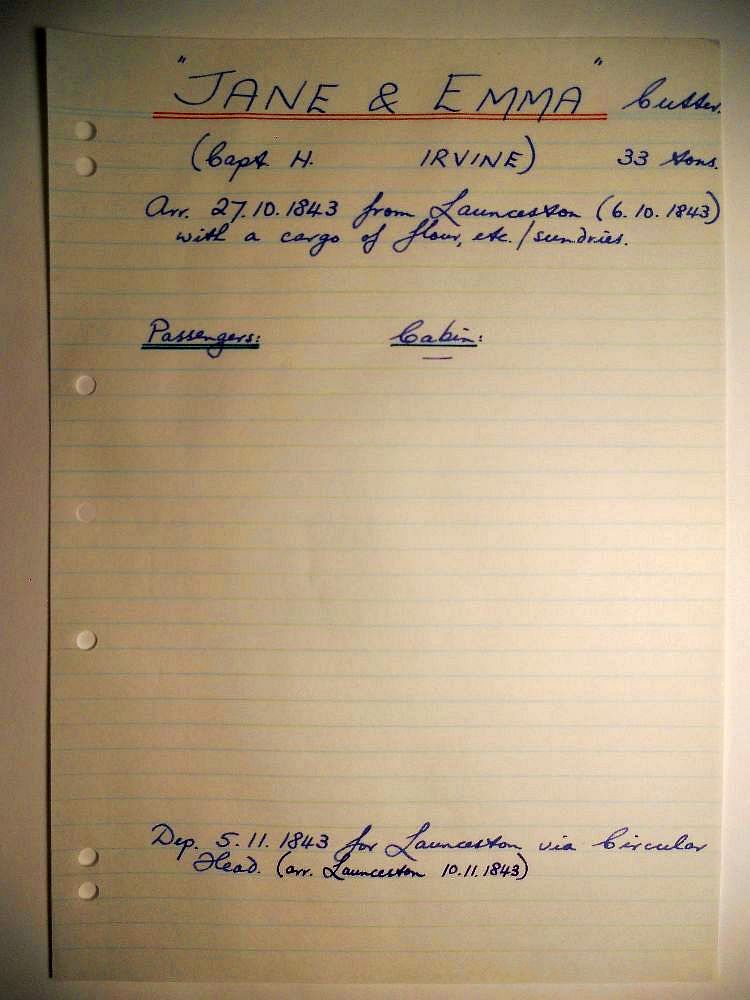 "JANE & EMMA" Cutter.
(Capt. H. IRVINE) 33 tons.
Arr. 27.10.1843 from Launceston (6.10.1843)
with a cargo of flour, etc./sundries.
Passengers: Cabin:
—
Dep. 5.11.1843 for Launceston via Circular
Head. (arr. Launceston 10.11.1843)